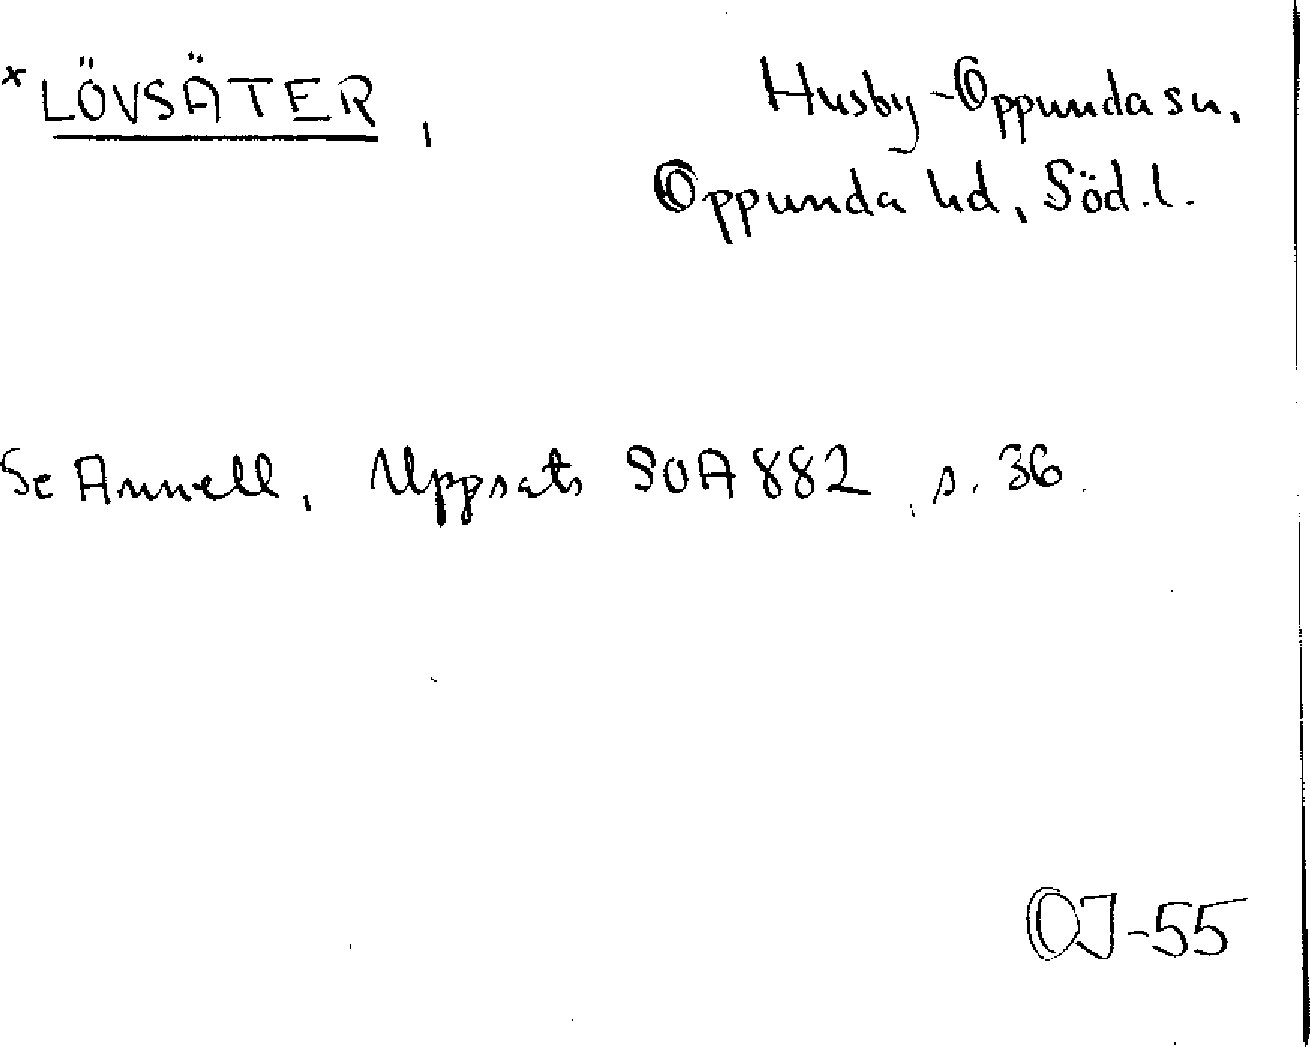 *LÖVSÄTER,
Husby-Oppunda sn,
Oppunda hd, Söd.l.
Se Annell, Uppsats SOA 882, s. 36.
OJ-55